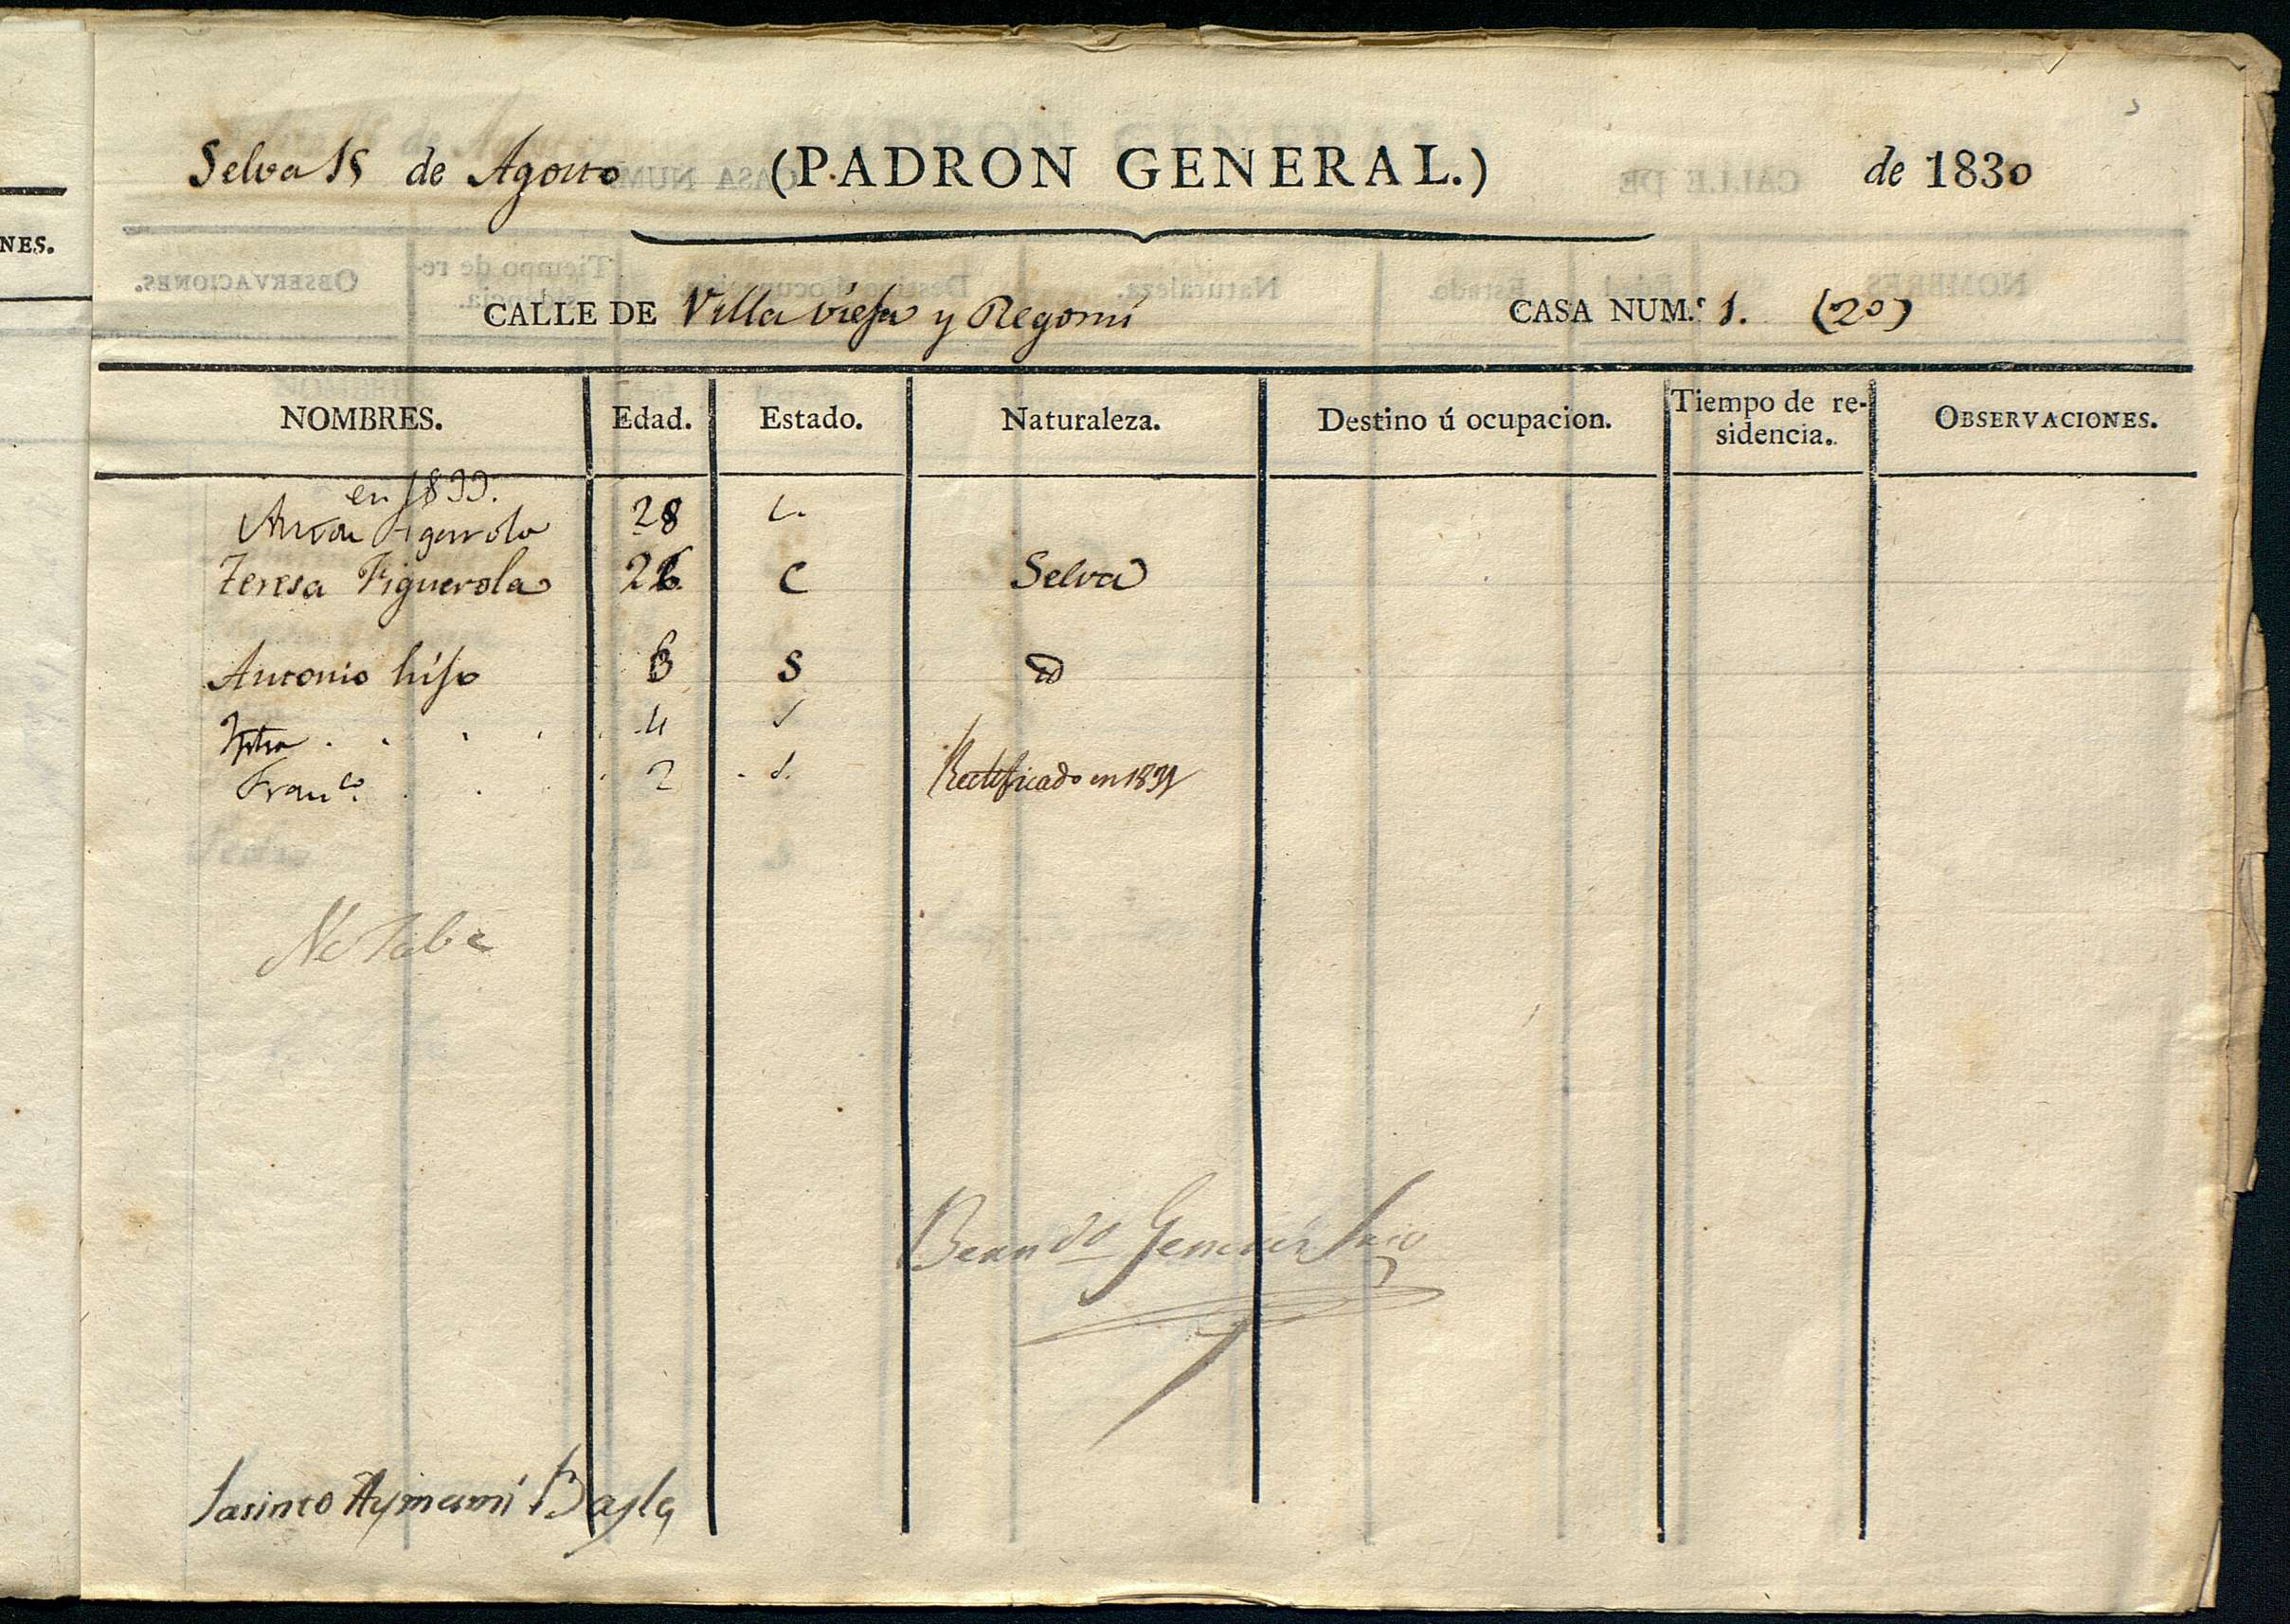 NES.
Selva 15 de Agosto (PADRON GENERAL.) de 1830
CALLE DE Villa vieja y Regomi CASA NUM.º 1. (20)
NOMBRES. Edad. Estado. Naturaleza. Destino ú ocupacion. Tiempo de re-sidencia. OBSERVACIONES.
en 1833.
Anton Figuerola 28 C.
Teresa Figuerola 26 C Selva
Antonio hijo 6 S id
4 S
Fran.co 2 S. Rectificado en 1831
No Sabe
Jacinto Aymamí Bayle